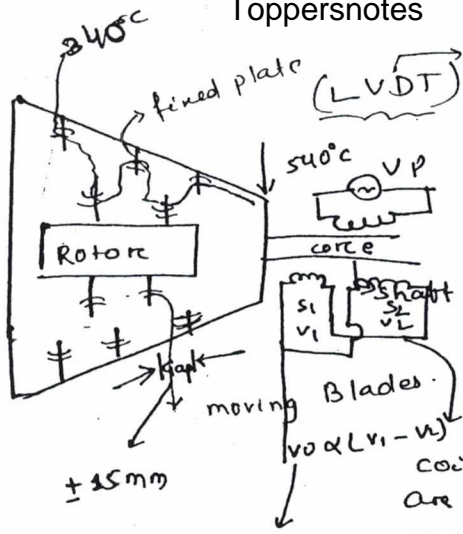 Toppersnotes
340°C
fixed plate
(LVDT)
540°C
VP
Rotor
core
shaft
S1
V1
S2
V2
Gap
moving Blades.
± 15mm
V0 α (V1 - V2)
coi
are